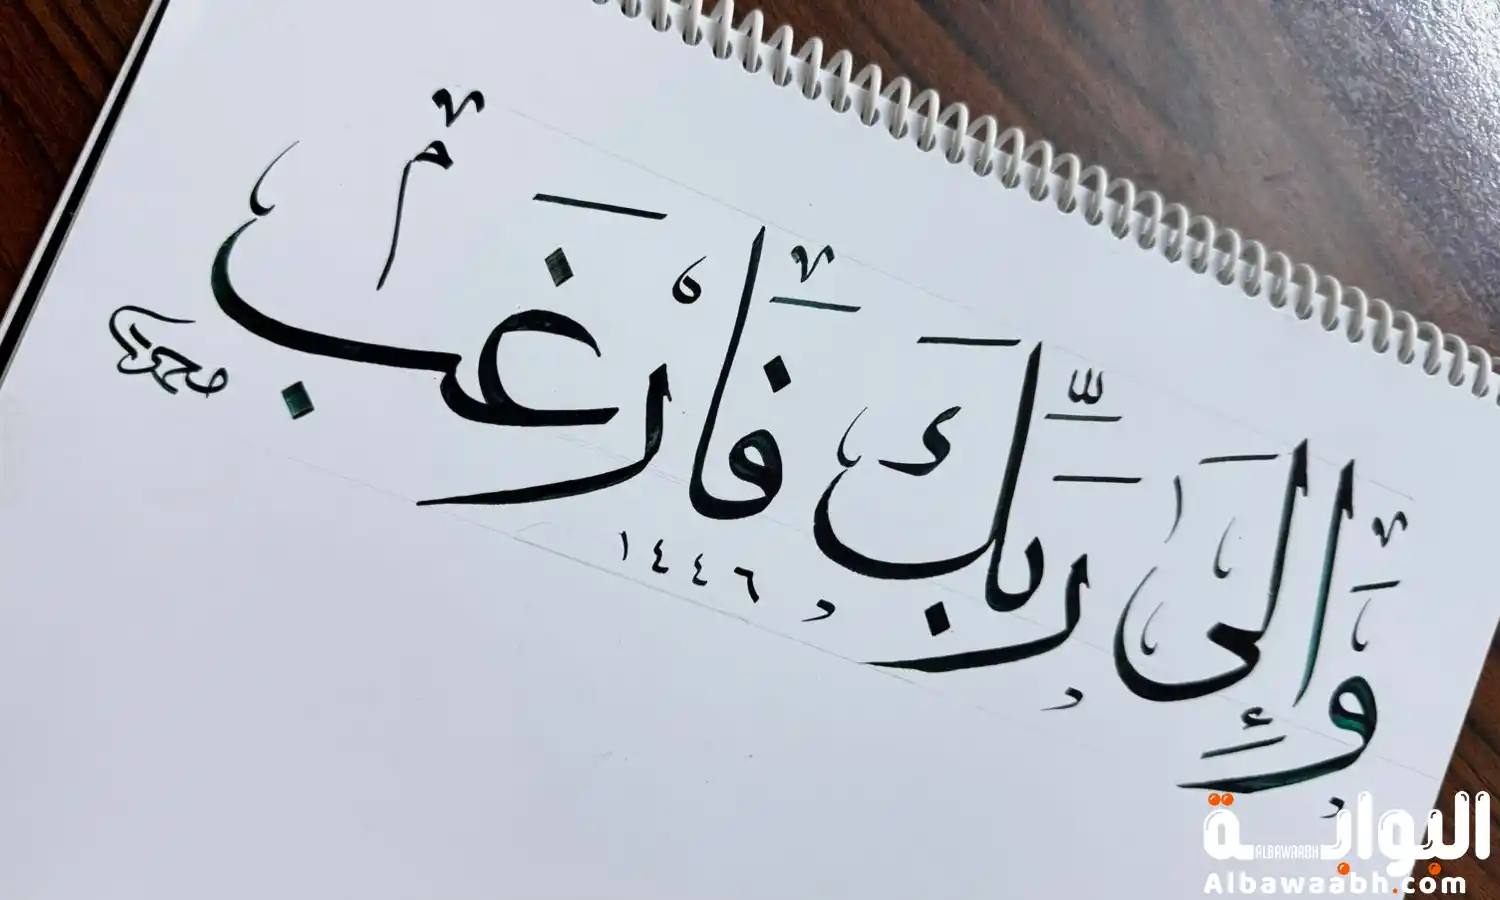 وَإِلَىٰ رَبِّكَ فَارْغَب
١٤٤٦
محمد
البوابة
ALBAWAABH
Albawaabh.com